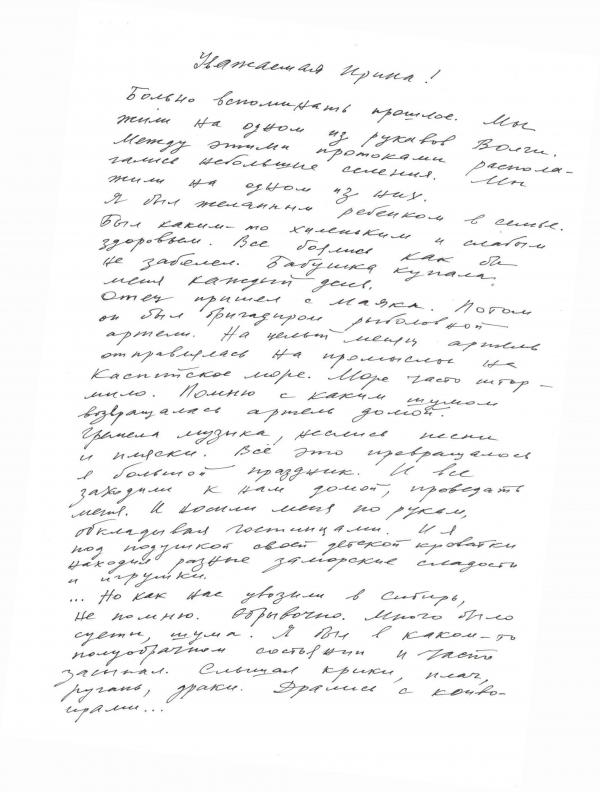 Уважаемая Ирина!
Больно вспоминать прошлое. Мы
жили на одном из рукавов Волги.
Между этими протоками распола-
гались небольшие селения. Мы
жили на одном из них.
Я был желанным ребенком в семье.
Был каким-то хиленьким и слабым
здоровьем. Все боялись как бы
не заболел. Бабушка купала
меня каждый день.
Отец пришел с маяка. Потом
он был бригадиром рыболовной
артели. На целый месяц артель
отправлялась на промыслы на
Каспийское море. Море часто штор-
мило. Помню с каким шумом
возвращалась артель домой.
Гремела музыка, неслись песни
и пляски. Всё это превращалось
в большой праздник. И все
заходили к нам домой, проведать
меня. И носили меня по рукам,
обкладывая гостинцами. И я
под подушкой своей детской кроватки
находил разные заморские сладости
и игрушки.
... Но как нас увозили в Сибирь,
не помню. Обрывочно. Много было
суеты, шума. Я был в каком-то
полуобрачном состоянии и часто
засыпал. Слышал крики, плач,
ругань, драки. Дрались с конво-
ирами...